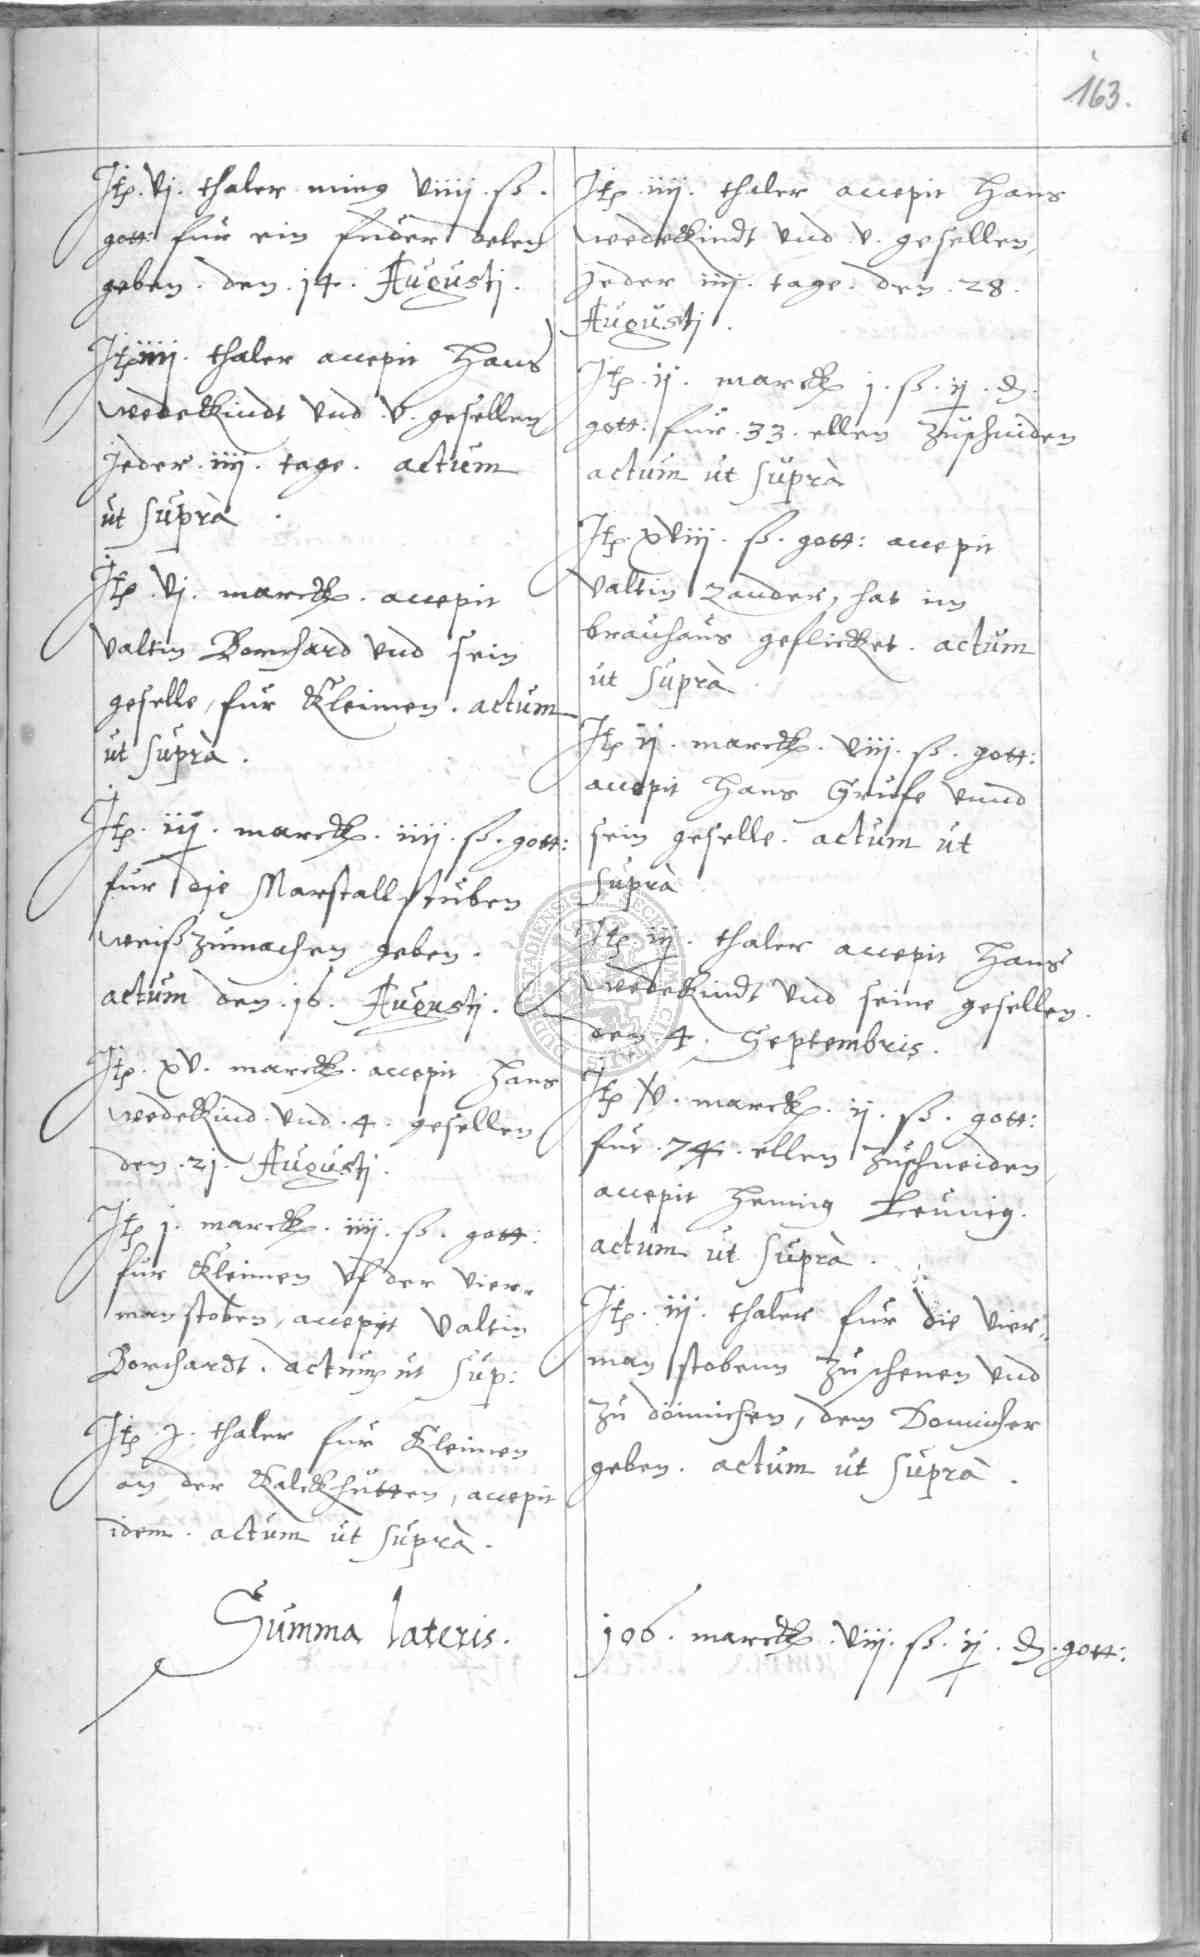 163.
Itp. vj. thaler ming viiij. ß.
gott: fur ein fuder delen
geben. den. 14. Augustj.
Itp. iiij. thaler accepit Hans
wedekindt vnd .v. gesellen
Jeder. iiij. tage. actum
ut suprà.
Itp. vj. marck. accepit
valtin Borchard vnd sein
geselle, fur Kleimen. actum
ut suprà.
Itp. iij. marck. iiij. ß. gott:
fur die Marstall stuben
weiß zumachen geben.
actum den. 16. Augustj.
Itp. xv. marck. accepit Hans
wedekind. vnd. 4. gesellen
den. 21. Augustj.
Itp. j. marck. iiij. ß. gott:
fur Kleimen vf der vier-
man stoben, accepit valtin
Borchardt. actum ut sup:
Itp. j. thaler fur Kleimen
an der Kalckhutten, accepit
idem. actum ut suprà.
Itp. iiij. thaler accepit Hans
wedekindt vnd .v. gesellen,
Jeder iiij. tage. den. 28.
Augustj.
Itp. ij. marck j. ß. ij. d.
gott: fur. 33. ellen zuschniden
actum ut suprà
Itp. xviij. ß. gott: accepit
valtin Zander, hat im
brauhaus geflicket. actum
ut suprà.
Itp ij. marck. viij. ß. gott:
accepit Hans Grufe vnnd
sein geselle. actum ut
suprà
Itp. iij. thaler accepit Hans
wedekindt vnd seine gesellen.
den 4. Septembris.
Itp. v. marck. ij. ß. gott:
fur. 74. ellen zuschneiden,
accepit Hennig Leunig.
actum ut suprà.
Itp. iij. thaler fur die vier,
man stobenn zu schenen vnd
zu dönnichen, dem Donnicher
geben. actum ut suprà.
Summa lateris. 106. marck. viij. ß. ij. d. gott: